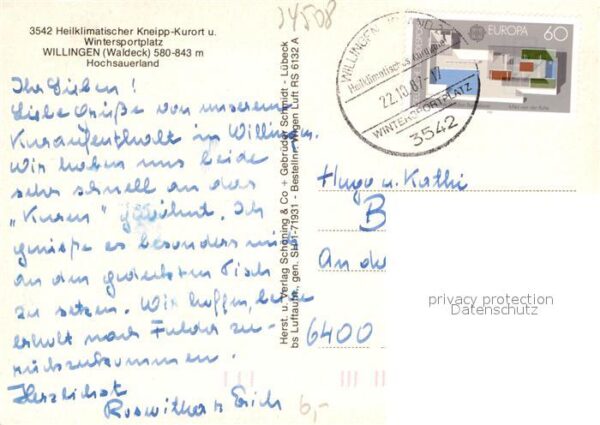 14508
3542 Heilklimatischer Kneipp-Kurort u.
Wintersportplatz
WILLINGEN (Waldeck) 580-843 m
Hochsauerland
Ihr Lieben!
Liebe Grüße von unserem
Kuraufenthalt in Willingen.
Wir haben uns beide
sehr schnell an das
„Kuren" gewöhnt. Ich
genieße es besonders mich
an den gedeckten Tisch
zu setzen. Wir hoffen, beide
erholt nach Fulda zu-
rückzukommen.
Herzlichst
Roswitha + Erich
6,-
Herst. u. Verlag Schöning & Co + Gebrüder Schmidt - Lübeck
bs Luftaufn. gen. SH 91-71931 - Bestellnr. Wigen Luft RS 6132 A
WILLINGEN
Heilklimatischer Kurort
22.10.87-17
WINTERSPORTPLATZ
3542
EUROPA 60
Hugo u. Kathi
B
An de
6400
privacy protection
Datenschutz